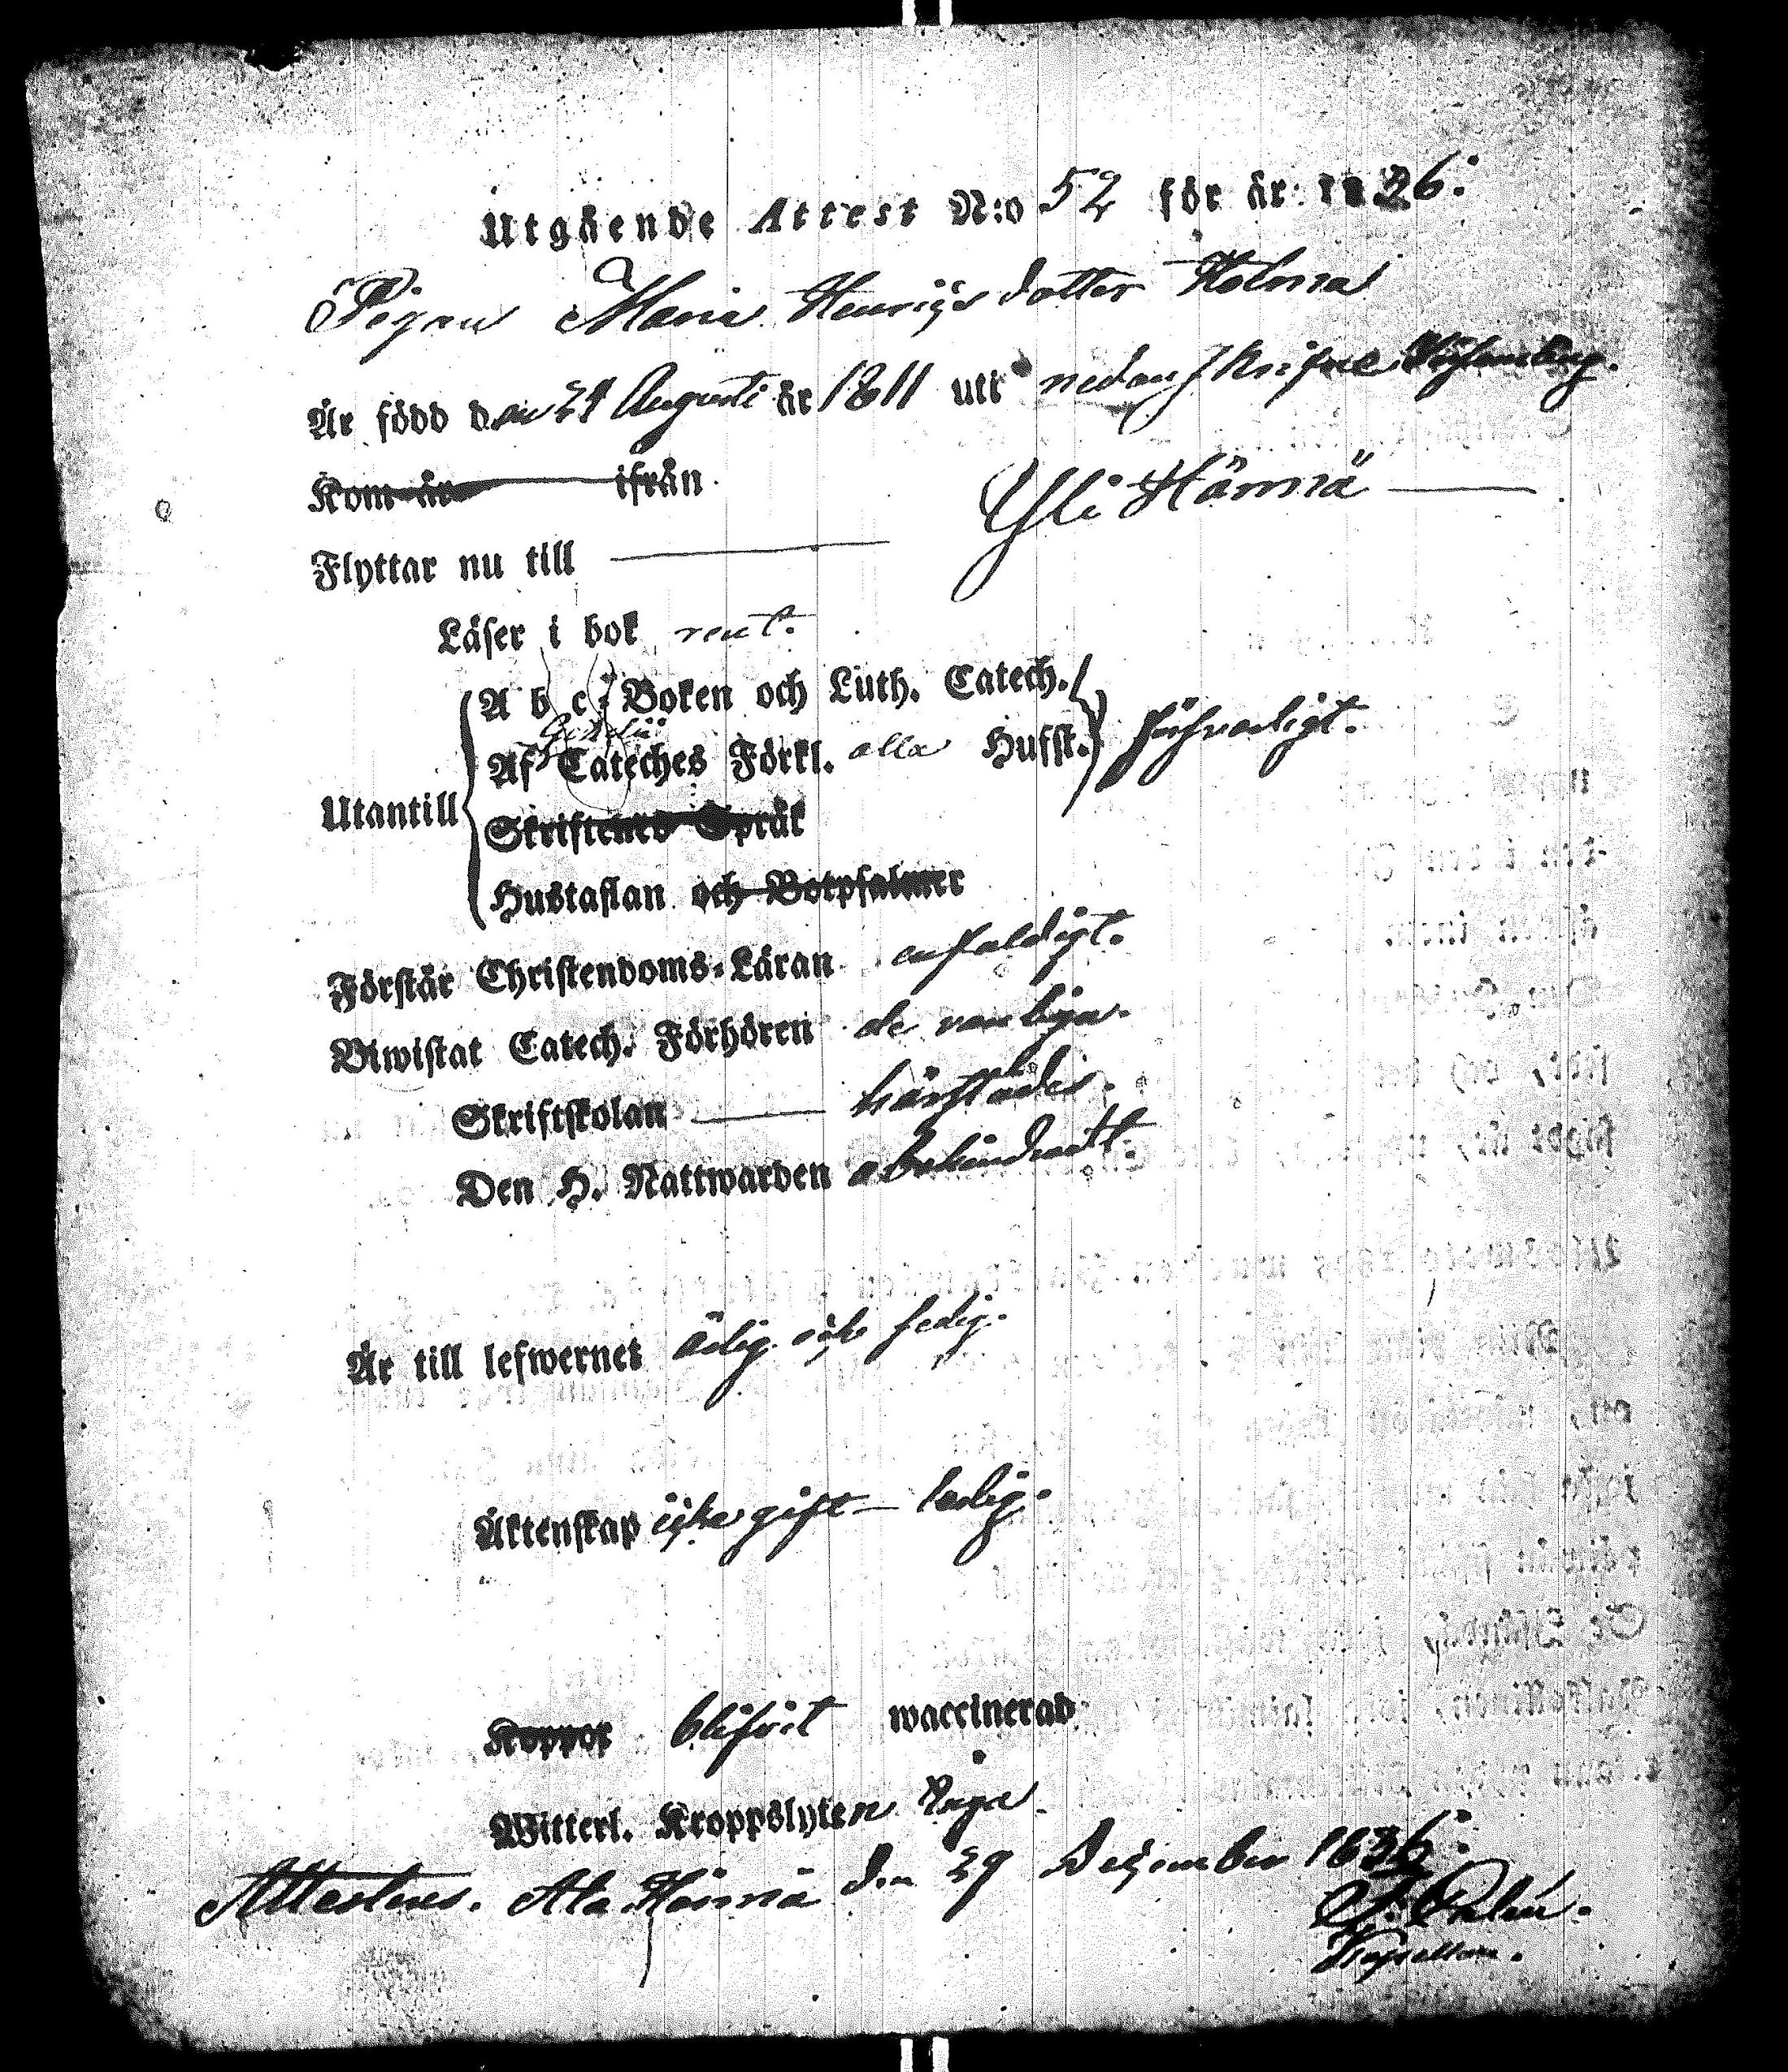 Utgående Attest N:o 52 för år 1836.
Pigan Maria Henricsdotter Kolma
Är född den 29 Augusti år 1811 uti nedanskrifne
Kom år ifrån
Flyttar nu till — Yli Härmä —
Läser i bok rent.
Utantill
A b c-Boken och Luth. Catech.
Gezelii
Af Cateches Förkl. alla Hufst. försvarligt.
Skriftenes Språk
Hustaflan och Botpsalmer
Förstår Christendoms-Läran enfaldigt.
Biwistat Catech. Förhören de vanliga.
Skriftskolan — härstädes.
Den H. Nattwarden obehindradt.
Är till lefwernet ärlig och sedig.
Äktenskap icke gift — ledig.
Koppor blifvit waccinerad
Witterl. Kroppslyten inga.
Attesteras. Ala Härmä den 29 December 1836.
Kapellan.